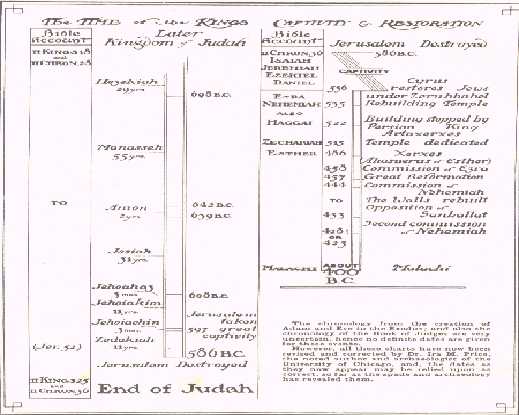 The TIME of the KINGS
Bible
Account
Later
Kingdom of Judah
II KINGS 18
and
II CHRON. 28
Hezekiah
29 yrs.
698 B.C.
Manasseh
55 yrs.
TO
Amon
2 yrs.
642 B.C.
639 B.C.
Josiah
31 yrs.
Jehoahaz
3 mos.
608 B.C.
Jehoiakim
11 yrs.
Jerusalem
taken
Jehoiachin
3 mos.
597 great
captivity
Zedekiah
11 yrs.
(Jer. 52)
586 B.C.
Jerusalem Destroyed
II KINGS 25
and
II CHRON. 36
End of Judah
CAPTIVITY & RESTORATION
Bible
Account
Jerusalem Destroyed
586 B.C.
II CHRON. 36
ISAIAH
JEREMIAH
EZEKIEL
DANIEL
CAPTIVITY
536
Cyrus
restores Jews
under Zerubbabel
EZRA
NEHEMIAH
535
Rebuilding Temple
ALSO
HAGGAI
522
Building stopped by
Persian King
Artaxerxes
ZECHARIAH
515
Temple dedicated
ESTHER
486
Xerxes
(Ahasuerus of Esther)
458
Commission of Ezra
457
Great Reformation
444
Commission of
Nehemiah
TO
The Walls rebuilt
433
Opposition of
Sanballat
428
OR
423
Second commission
of Nehemiah
MALACHI
ABOUT
400
B.C.
Malachi
The chronology from the creation of
Adam and Eve to the Exodus, and also the
chronology of the Book of Judges are very
uncertain, hence no definite dates are given
for these events.
However, all these charts have now been
revised and corrected by Dr. Ira M. Price,
the noted author and archaeologist of the
University of Chicago, and, the dates as
they now appear may be relied upon as
correct, so far as the spade and archaeology
has revealed them.